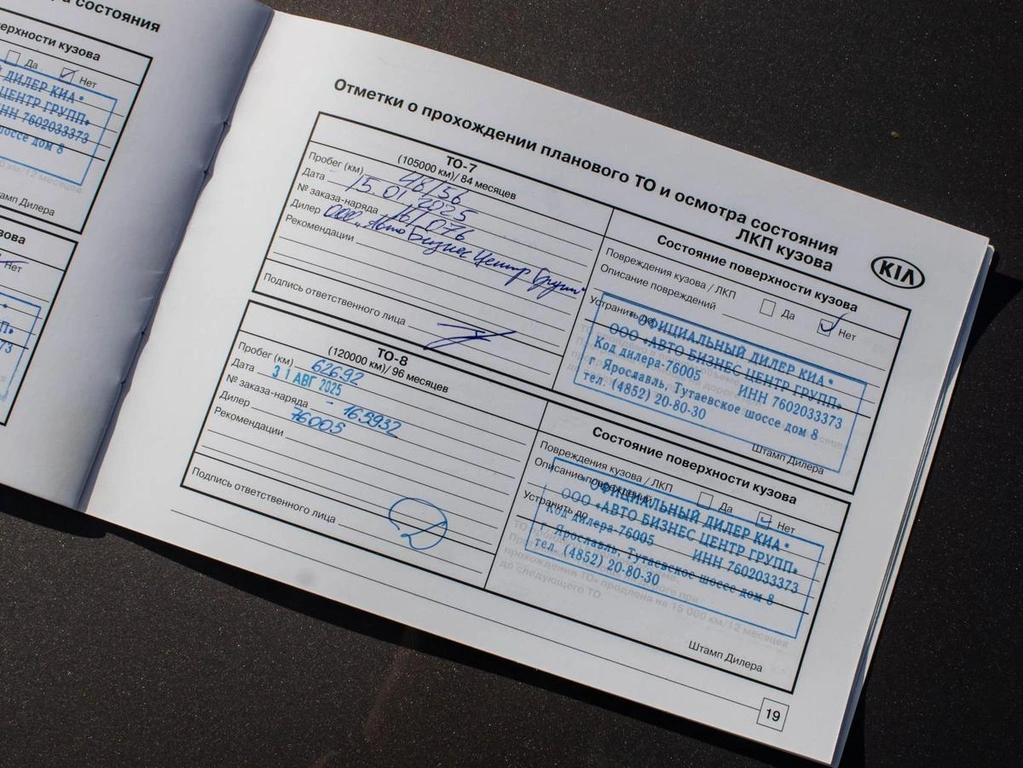 ра состояния
ерхности кузова
Да
Нет
ДИЛЕР КИА •
ЦЕНТР ГРУПП»
ИНН 7602033373
шоссе дом 8
Штамп Дилера
зова
Нет
Отметки о прохождении планового ТО и осмотра состояния
ЛКП кузова
KIA
ТО-7
(105000 км)/ 84 месяцев
Пробег (км) 48156
Дата 15.01.2025
№ заказа-наряда 161076
Дилер ООО "Авто Бизнес Центр Групп"
Рекомендации
Подпись ответственного лица
Состояние поверхности кузова
Повреждения кузова / ЛКП
Да
Нет
Описание повреждений
Устранить до
ОФИЦИАЛЬНЫЙ ДИЛЕР КИА •
ООО «АВТО БИЗНЕС ЦЕНТР ГРУПП»
Код дилера-76005 ИНН 7602033373
г. Ярославль, Тутаевское шоссе дом 8
тел. (4852) 20-80-30
Штамп Дилера
ТО-8
(120000 км)/ 96 месяцев
Пробег (км) 62692
Дата 31 АВГ 2025
№ заказа-наряда - 165932
Дилер 76005
Рекомендации
Подпись ответственного лица
Состояние поверхности кузова
Повреждения кузова / ЛКП
Да
Нет
Описание повреждений
Устранить до
ОФИЦИАЛЬНЫЙ ДИЛЕР КИА •
ООО «АВТО БИЗНЕС ЦЕНТР ГРУПП»
Код дилера-76005 ИНН 7602033373
г. Ярославль, Тутаевское шоссе дом 8
тел. (4852) 20-80-30
Штамп Дилера
19